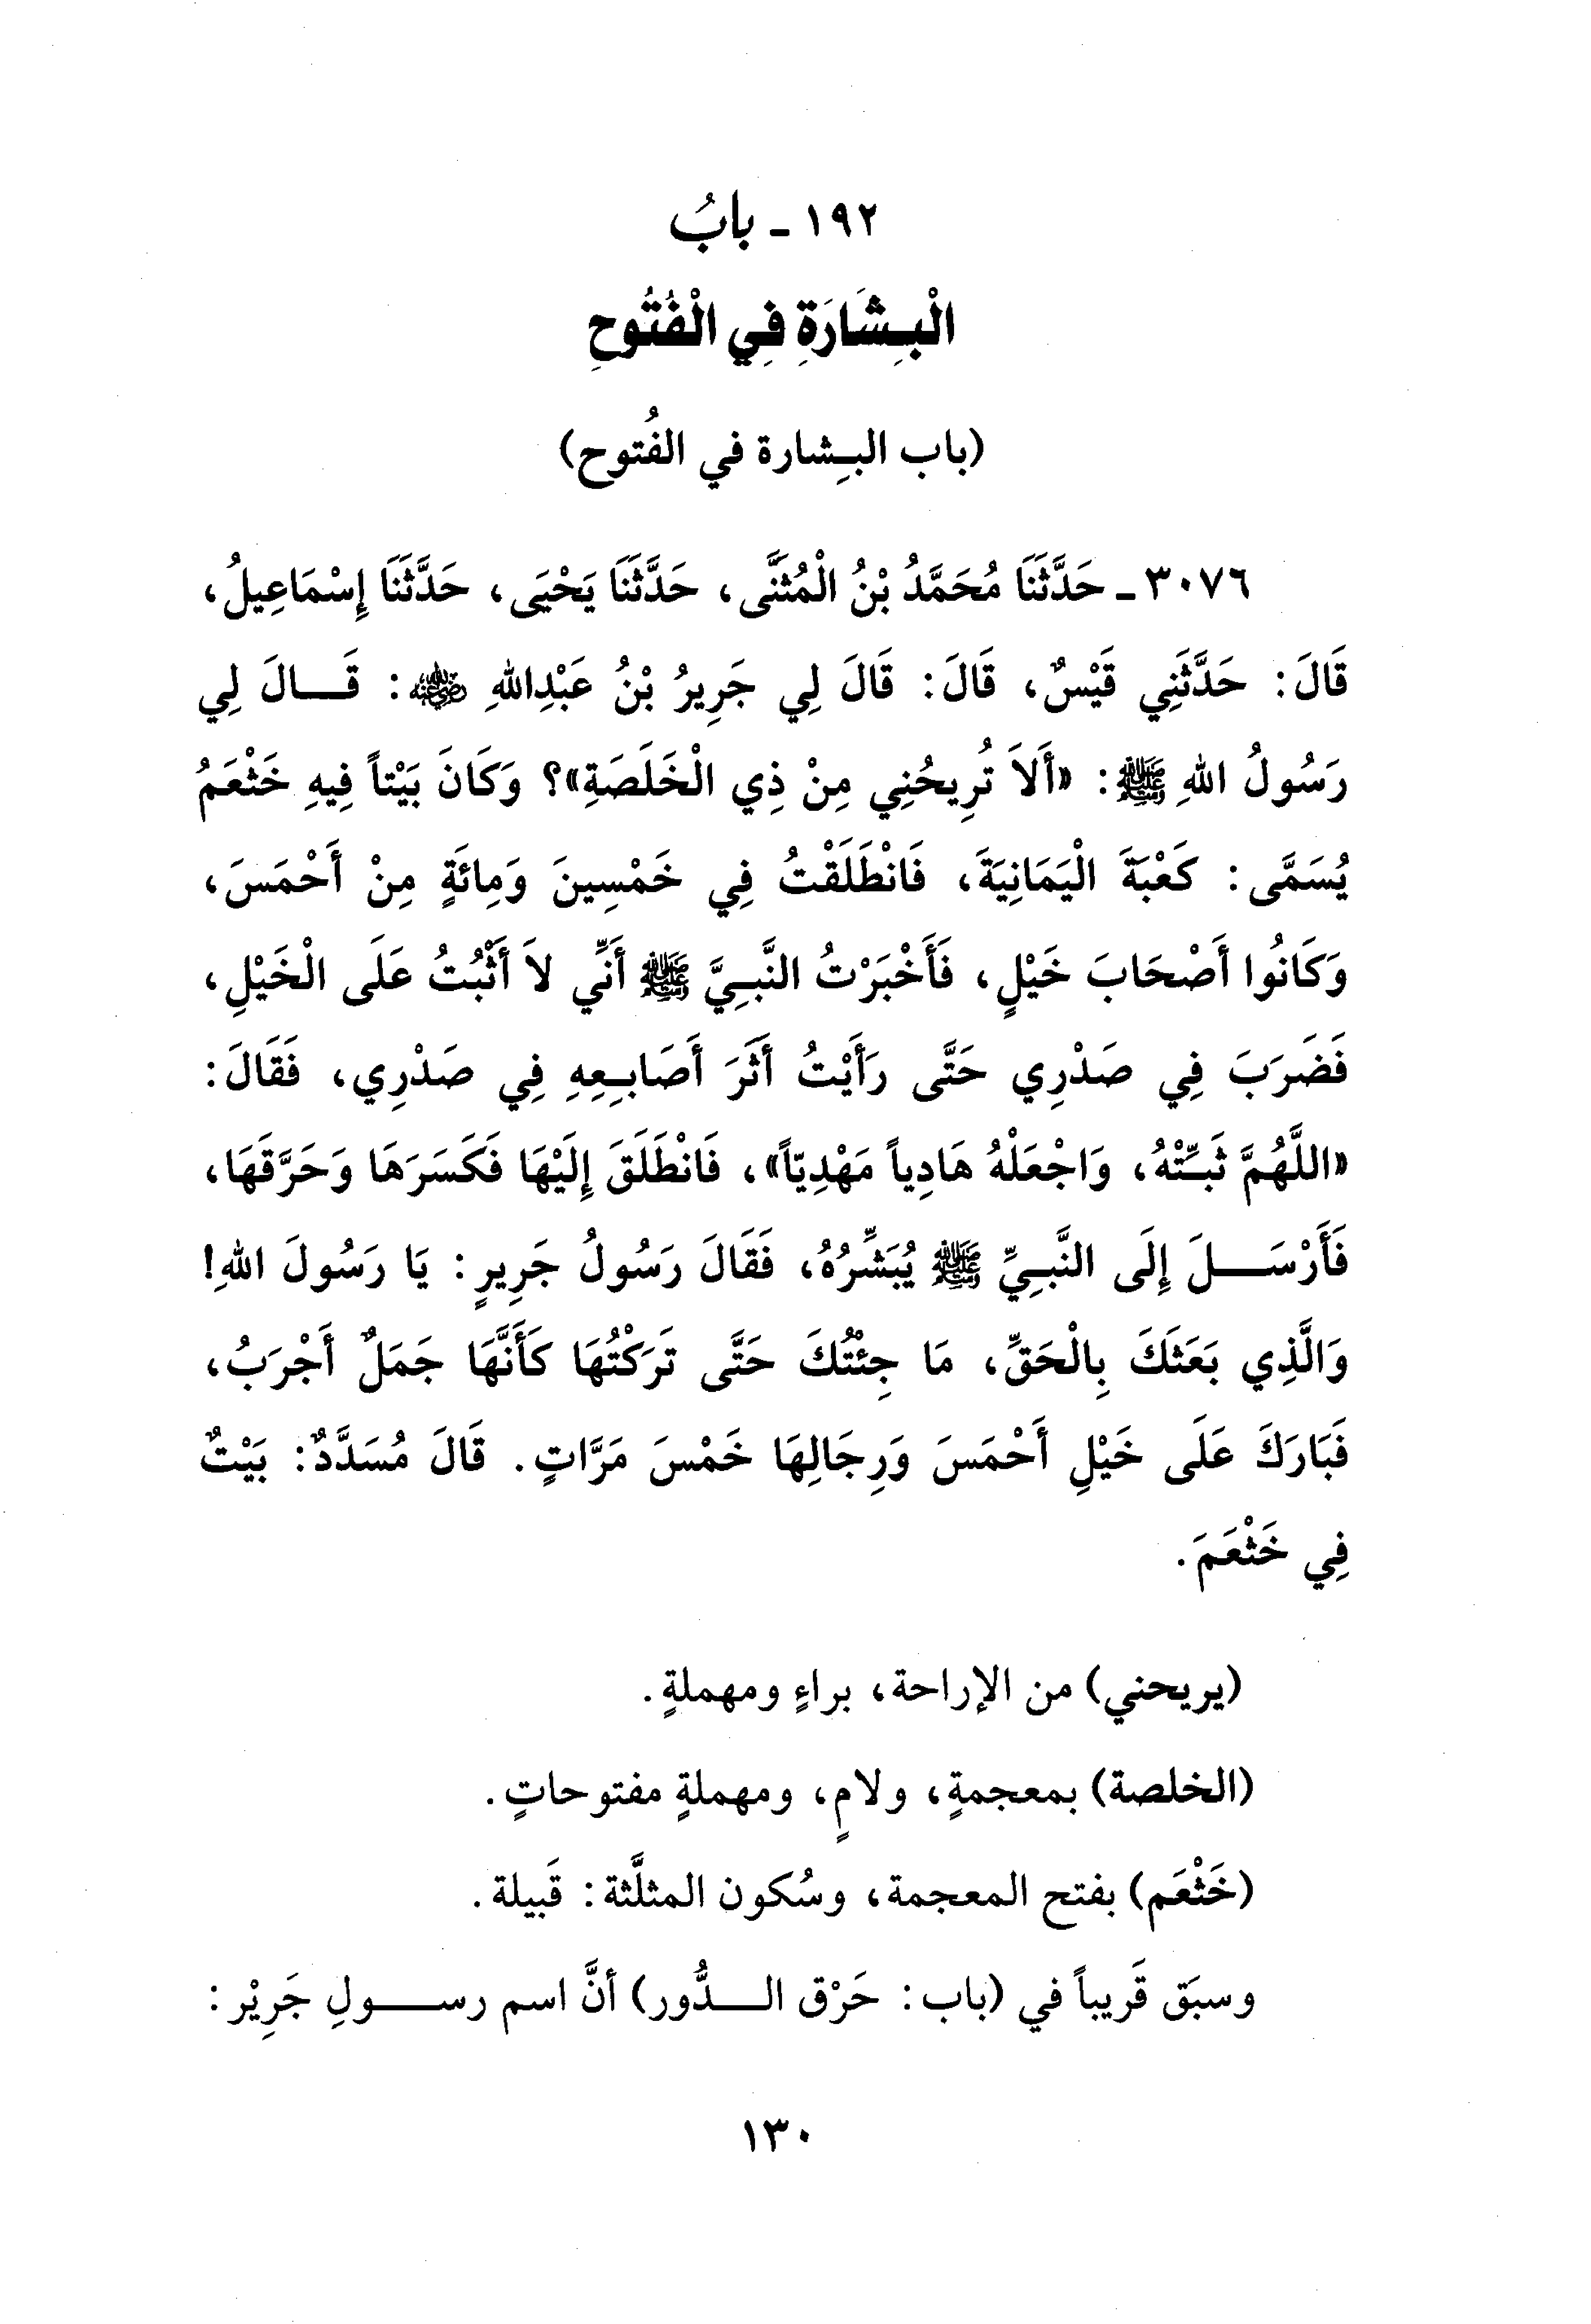 ١٩٢ - بابُ
الْبِشَارَةِ فِي الْفُتُوحِ
(باب البِشارة في الفُتوح)
٣٠٧٦ - حَدَّثَنَا مُحَمَّدُ بْنُ الْمُثَنَّى، حَدَّثَنَا يَحْيَى، حَدَّثَنَا إِسْمَاعِيلُ،
قَالَ: حَدَّثَنِي قَيْسٌ، قَالَ: قَالَ لِي جَرِيرُ بْنُ عَبْدِاللهِ رضي الله عنه: قَالَ لِي
رَسُولُ اللهِ ﷺ: «أَلاَ تُرِيحُنِي مِنْ ذِي الْخَلَصَةِ»؟ وَكَانَ بَيْتاً فِيهِ خَثْعَمُ
يُسَمَّى: كَعْبَةَ الْيَمَانِيَةَ، فَانْطَلَقْتُ فِي خَمْسِينَ وَمِائَةٍ مِنْ أَحْمَسَ،
وَكَانُوا أَصْحَابَ خَيْلٍ، فَأَخْبَرْتُ النَّبِيَّ ﷺ أَنِّي لاَ أَثْبُتُ عَلَى الْخَيْلِ،
فَضَرَبَ فِي صَدْرِي حَتَّى رَأَيْتُ أَثَرَ أَصَابِعِهِ فِي صَدْرِي، فَقَالَ:
«اللَّهُمَّ ثَبِّتْهُ، وَاجْعَلْهُ هَادِياً مَهْدِيّاً»، فَانْطَلَقَ إِلَيْهَا فَكَسَرَهَا وَحَرَّقَهَا،
فَأَرْسَلَ إِلَى النَّبِيِّ ﷺ يُبَشِّرُهُ، فَقَالَ رَسُولُ جَرِيرٍ: يَا رَسُولَ اللهِ!
وَالَّذِي بَعَثَكَ بِالْحَقِّ، مَا جِئْتُكَ حَتَّى تَرَكْتُهَا كَأَنَّهَا جَمَلٌ أَجْرَبُ،
فَبَارَكَ عَلَى خَيْلِ أَحْمَسَ وَرِجَالِهَا خَمْسَ مَرَّاتٍ. قَالَ مُسَدَّدٌ: بَيْتٌ
فِي خَثْعَمَ.
(يريحني) من الإراحة، براءٍ ومهملةٍ.
(الخلصة) بمعجمةٍ، ولامٍ، ومهملةٍ مفتوحاتٍ.
(خَثْعَم) بفتح المعجمة، وسُكون المثلَّثة: قَبيلة.
وسبَق قَريباً في (باب: حَرْق الدُّور) أنَّ اسم رسولِ جَرِيْر:
١٣٠